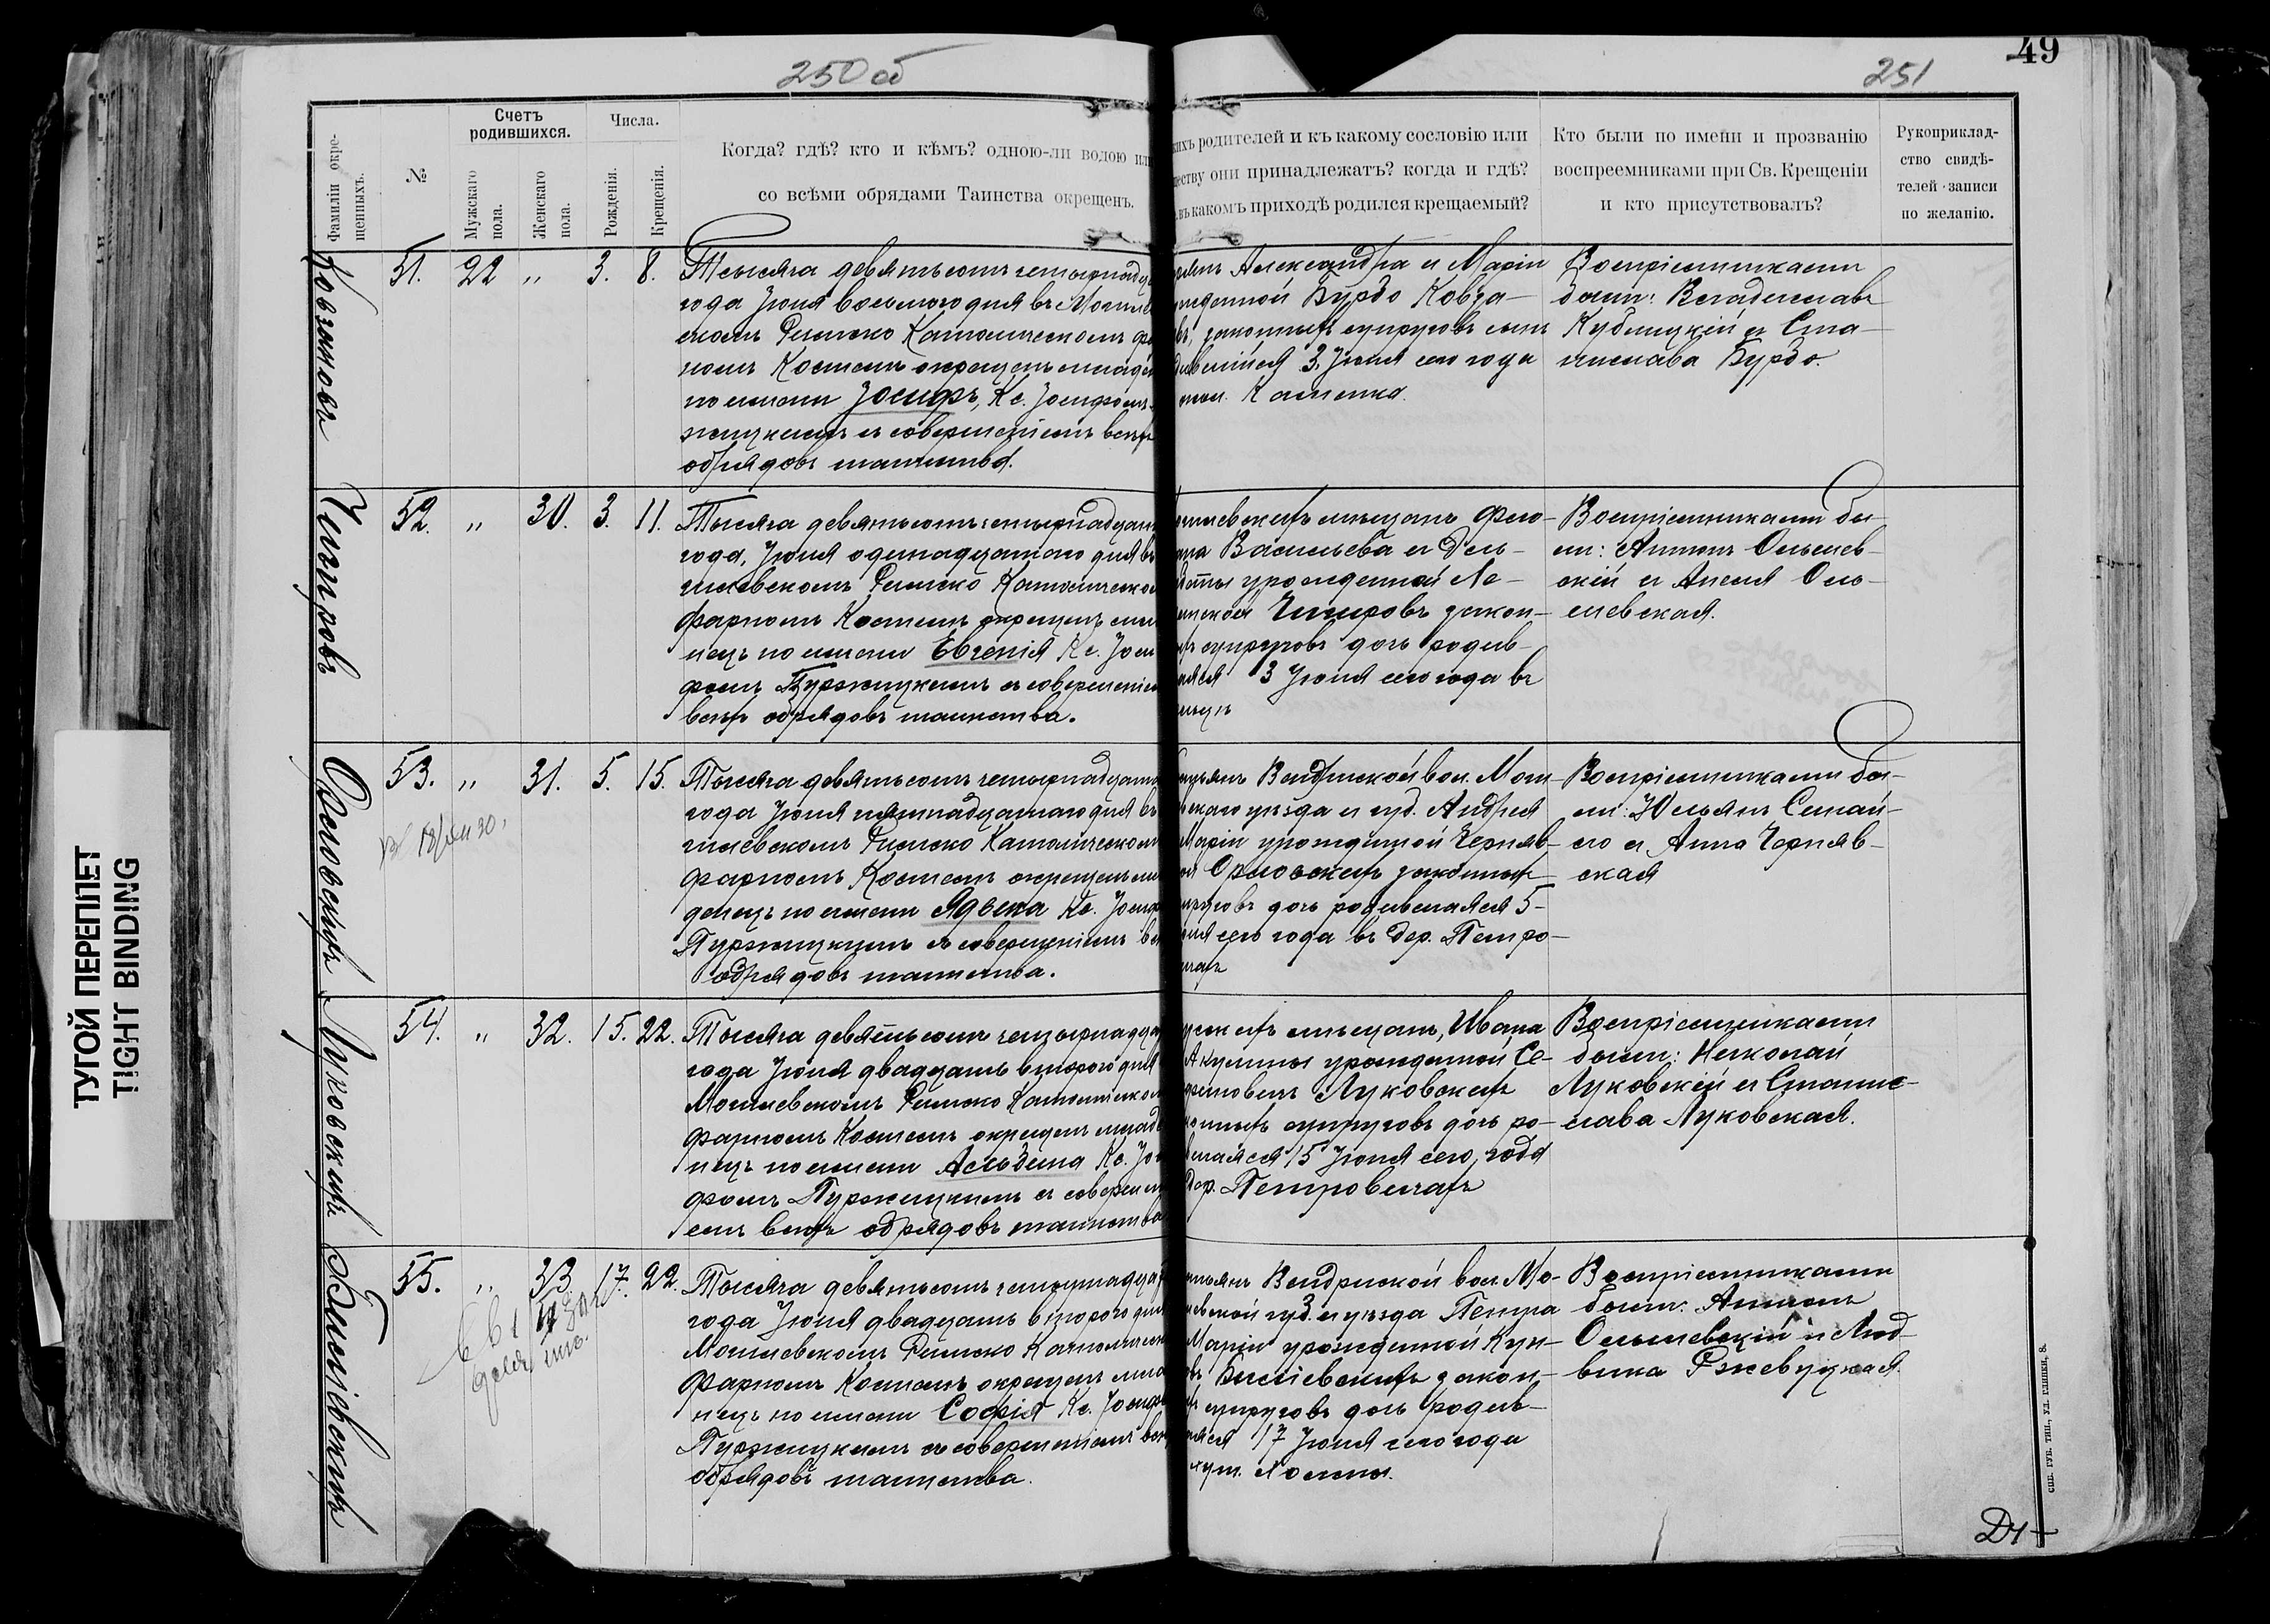 250 об
251
49
Фамиліи окрещенныхъ.
№
Счетъ родившихся.
Мужскаго пола.
Женскаго пола.
Числа.
Рожденія.
Крещенія.
Когда? гдѣ? кто и кѣмъ? одною-ли водою или
со всѣми обрядами Таинства окрещенъ.
кихъ родителей и къ какому сословію или
ществу они принадлежатъ? когда и гдѣ?
въ какомъ приходѣ родился крещаемый?
Кто были по имени и прозванію
воспреемниками при Св. Крещеніи
и кто присутствовалъ?
Рукоприклад-
ство свидѣ-
телей записи
по желанію.
51. 22 „ 3. 8.
Тысяча девятьсотъ четырнадца
года Іюня восьмого дня въ Могиле
скомъ Римско Католическомъ фа
номъ Костелѣ окрещенъ младе
по имени Іосифъ, Кс. Іосифомъ
жицкимъ съ совершеніемъ всѣхъ
обрядовъ таинства.
Александра и Маріи
урожденной Бурдо
законныхъ супруговъ сынъ
родившійся 3 Іюня сего года
Каменка.
Воспріемниками
были: Владиславъ
Кубицкій и Ста-
нислава Бурдо.
Чигировъ
52. „ 30. 3. 11.
Тысяча девятьсотъ четырнадцат
года, Іюня одинадцатого дня въ
гилевскомъ Римско Католическом
фарномъ Костелѣ окрещенъ мла
нецъ по имени Евгенія Кс. Іоси
фомъ Пуржицкимъ съ совершеніем
всѣхъ обрядовъ таинства.
гилевскихъ мѣщанъ
Васильева и
урожденной Ле-
Чигировъ закон-
ныхъ супруговъ дочь родив-
шаяся 3 Іюня сего года въ
Воспріемниками бы-
ли: Антонъ Ольшев-
скій и Анеля Оль-
шевская.
Орловскихъ
53. „ 31. 5. 15.
Тысяча девятьсотъ четырнадцато
года Іюня пятнадцатаго дня въ
гилевскомъ Римско Католическом
фарномъ Костелѣ окрещенъ мла
денецъ по имени Ядвига Кс. Іосиф
Пуржицкимъ съ совершеніемъ вс
обрядовъ таинства.
Вендрижской вол. Моги-
вскаго уѣзда и губ. Андрея
Маріи урожденной Черняв-
Орловскихъ законныхъ
супруговъ дочь родившаяся 5-
сего года въ дер. Петро-
вичахъ
Воспріемниками бы-
ли: Юльянъ
и Анна Черняв-
ская
Луковскихъ
54. „ 32. 15. 22.
Тысяча девятьсотъ четырнадца
года Іюня двадцать второго дня
Могилевскомъ Римско Католическом
фарномъ Костелѣ окрещенъ младе
нецъ по имени Альдина Кс. Іо
фомъ Пуржицкимъ съ совершені
емъ всѣхъ обрядовъ таинства
мѣщанъ, Ивана
Акулины урожденной Се-
Луковскихъ
законныхъ супруговъ дочь ро-
дившаяся 15 Іюня сего года
дер. Петровичахъ
Воспріемниками
были: Николай
Луковскій и Станис-
лава Луковская.
55. „ 33. 17. 22.
Тысяча девятьсотъ четырнадца
года Іюня двадцать второго дня
Могилевскомъ Римско Католическ
фарномъ Костелѣ окрещенъ мла
нецъ по имени Софія Кс. Іосиф
Пуржицкимъ съ совершеніемъ всѣ
обрядовъ таинства.
Вендрижской вол. Мо-
гилевской губ. и уѣзда Петра
Маріи урожденной Кун-
закон-
ныхъ супруговъ дочь родив-
шаяся 17 Іюня сего года
Воспріемниками
были: Антонъ
Ольшевскій и Люд-
вика Ржевуцкая.
ТУГОЙ ПЕРЕПЛЕТ
TIGHT BINDING
СПБ. ГУБ. ТИП., УЛ. ГЛИНКИ, 8.